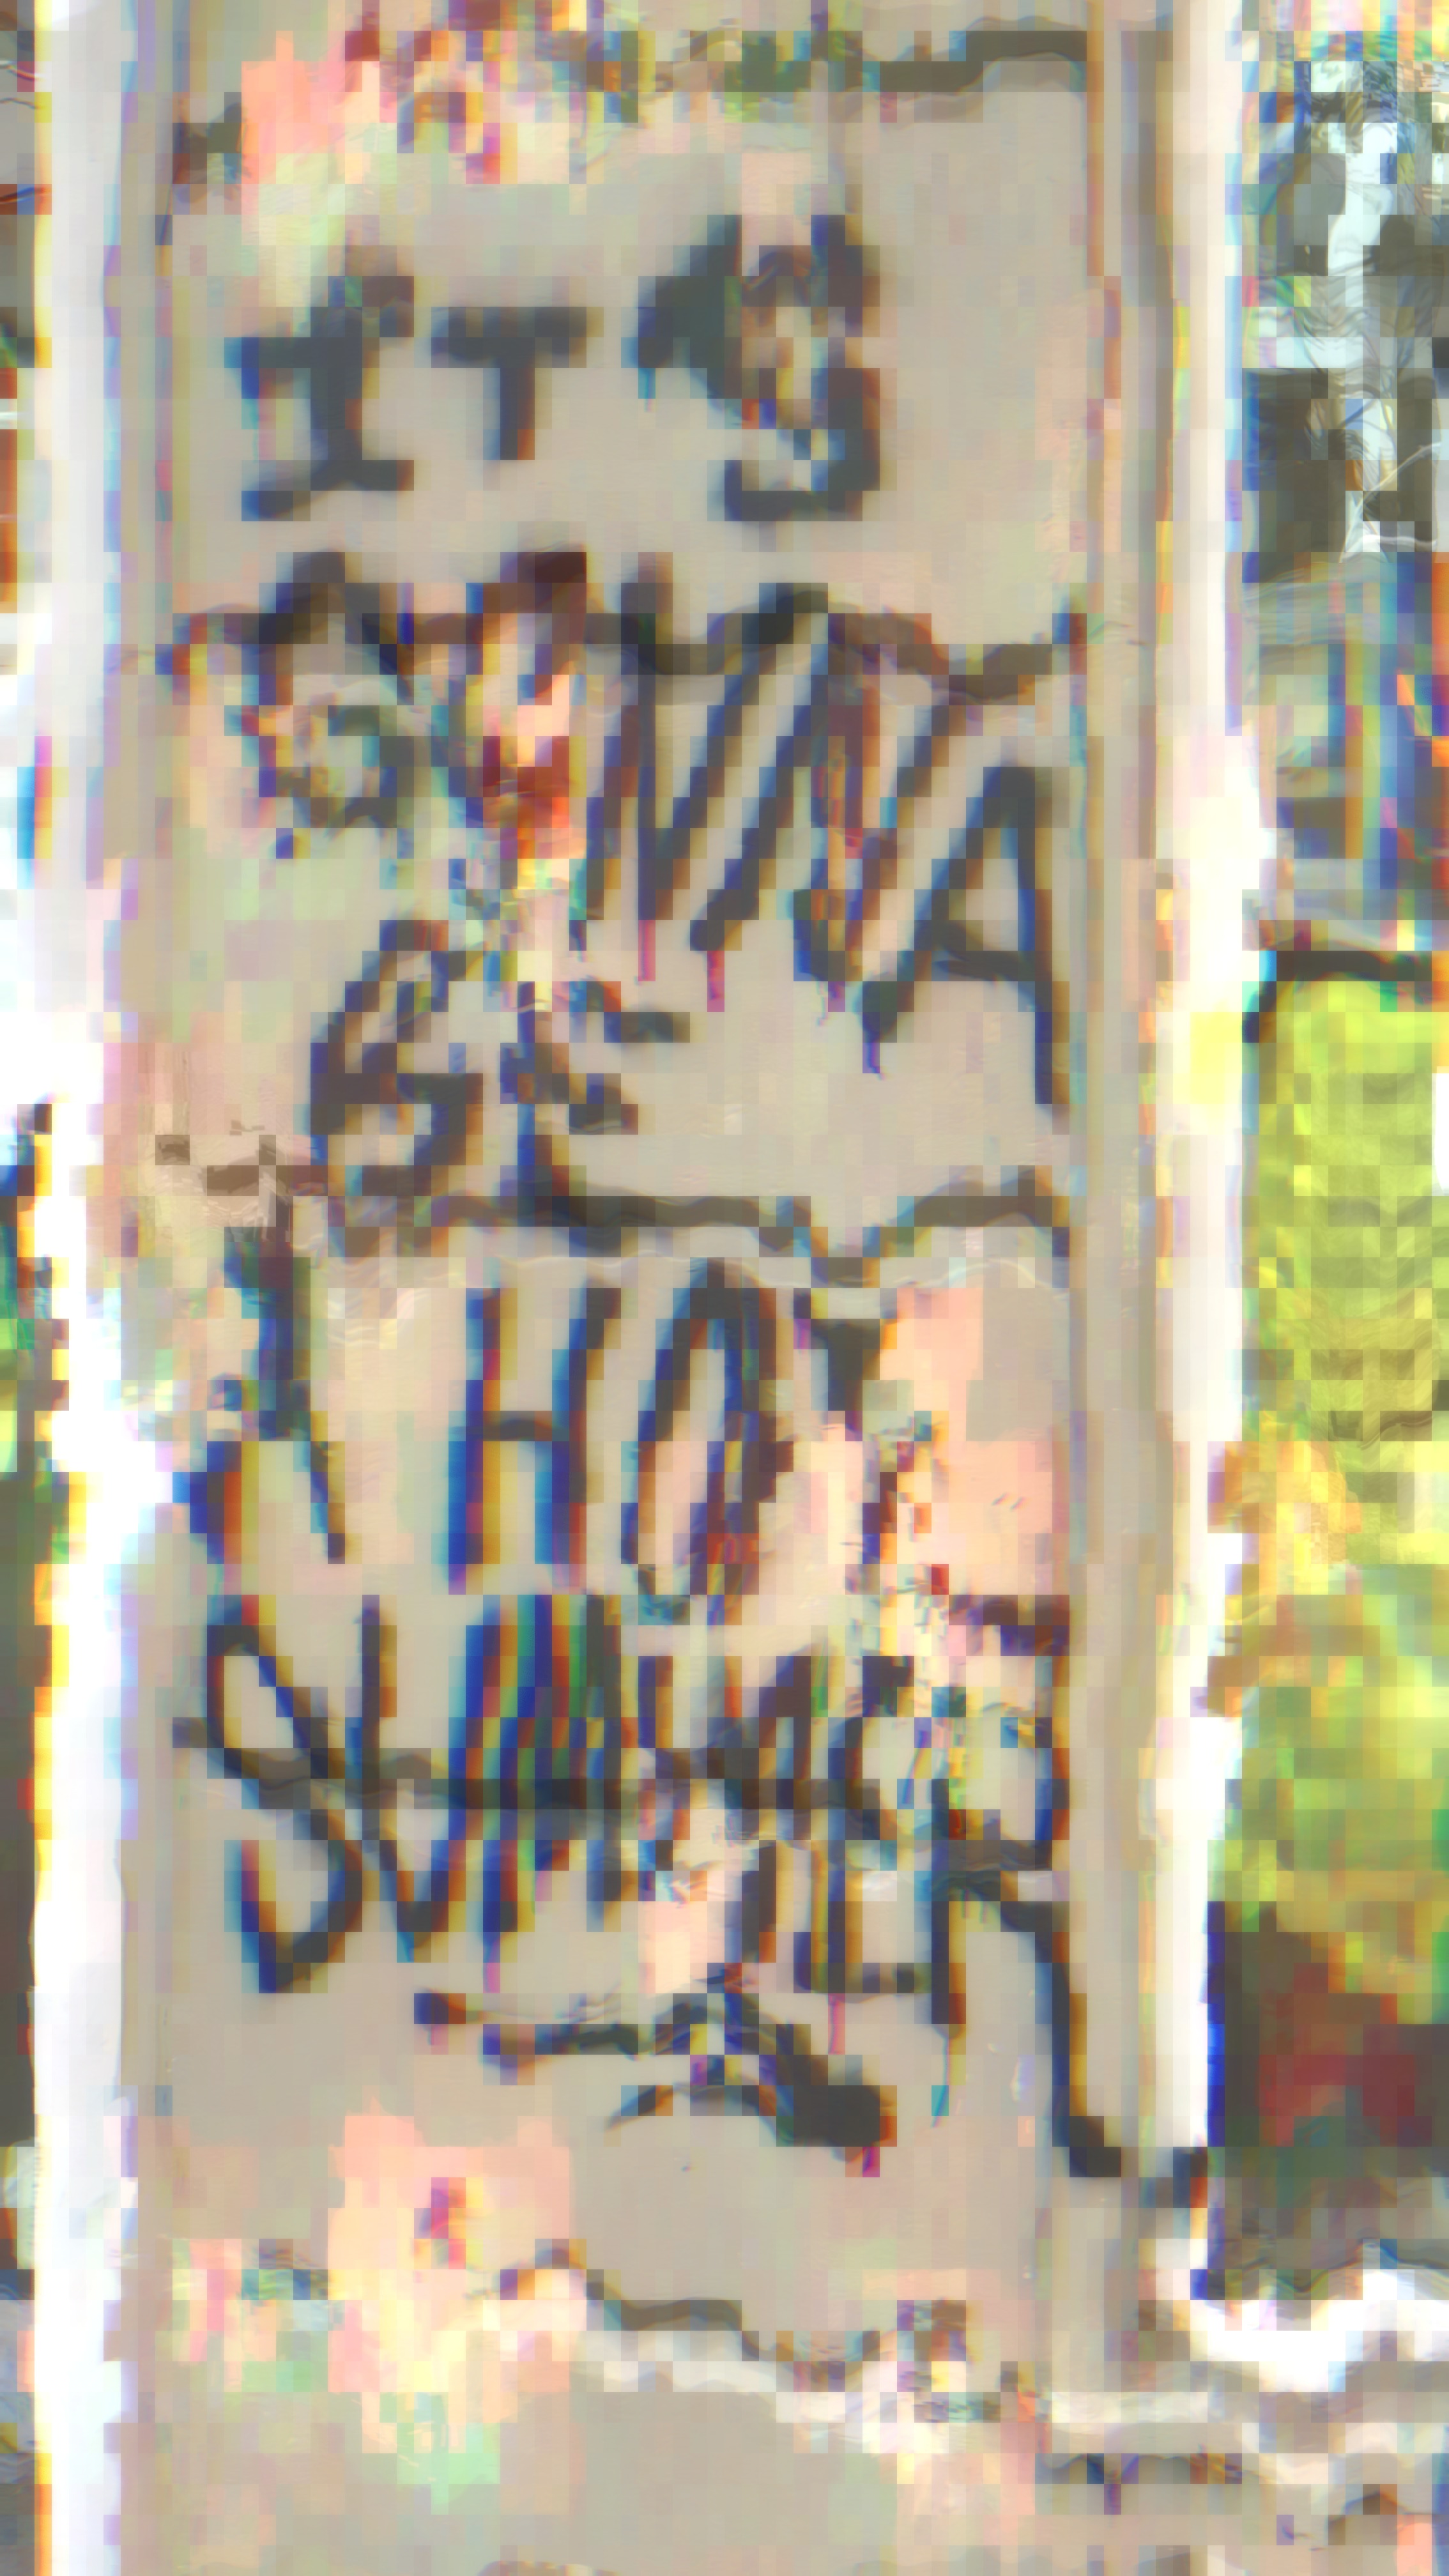 ITS
GONNA
BE
A HOT
SUMMER